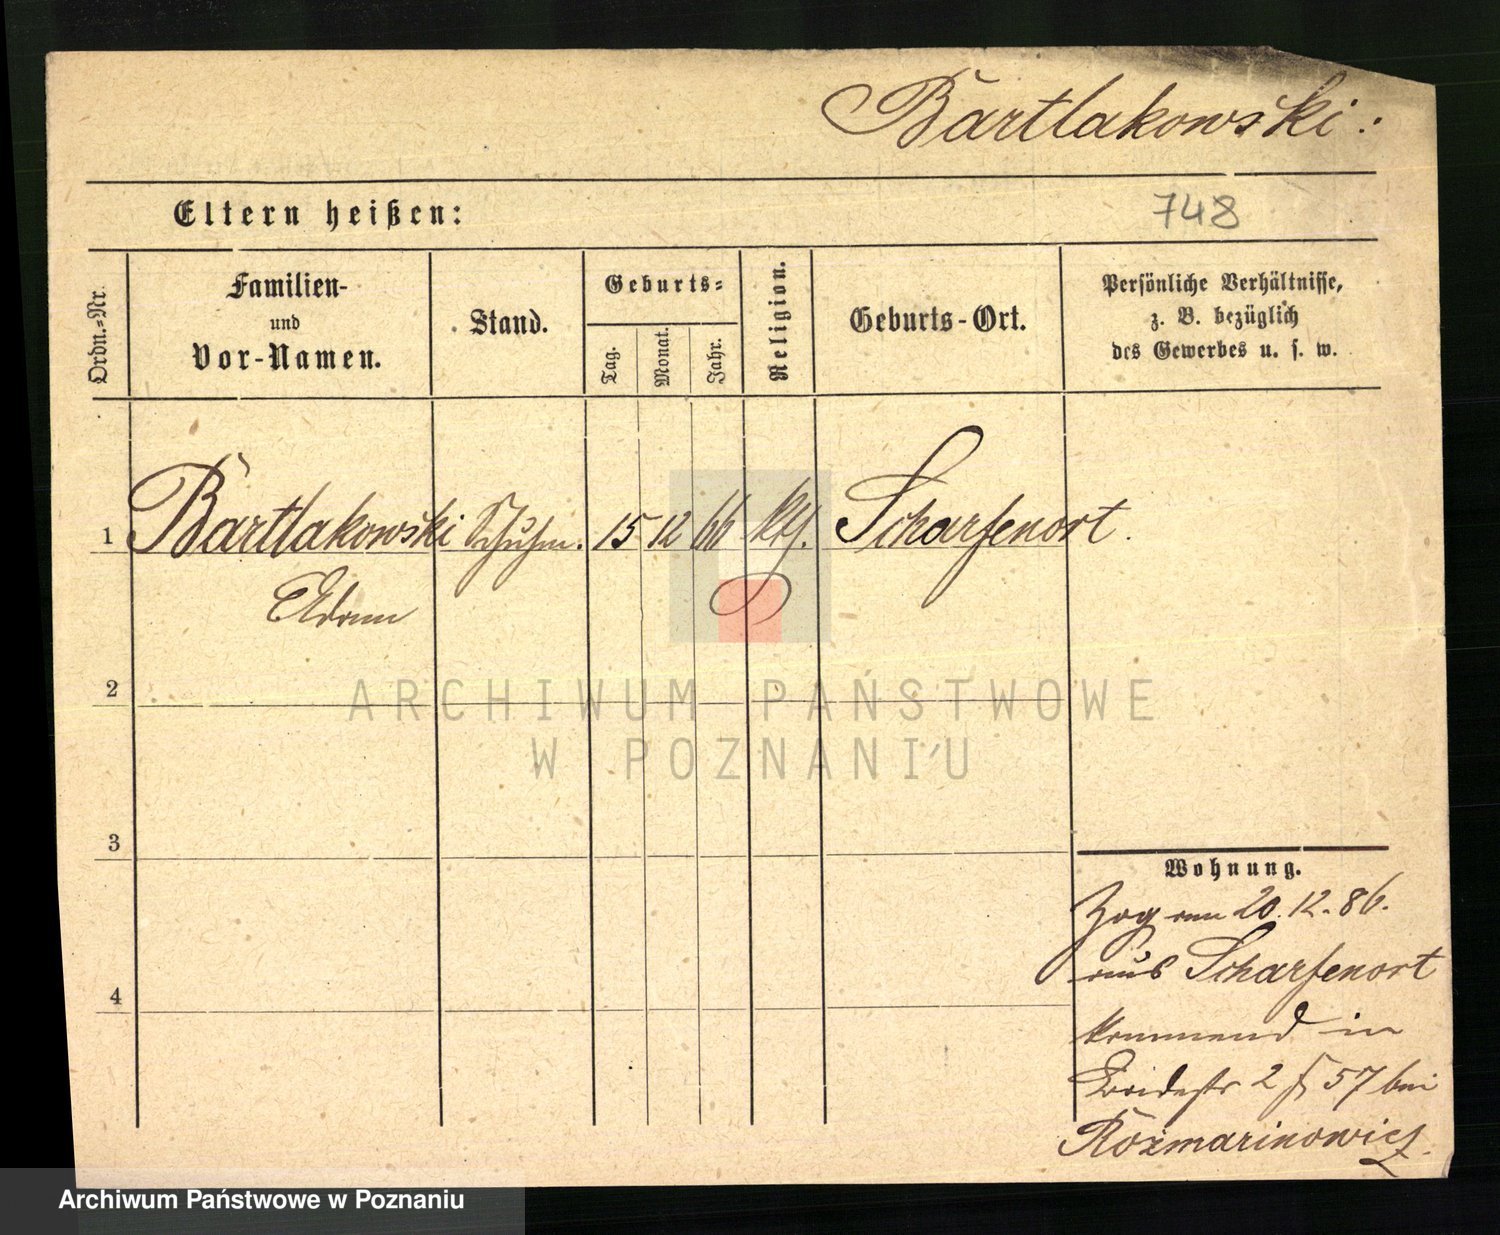 Bartlakowski:
Eltern heißen:
748
Ordn.=Nr.
Familien-
und
Vor-Namen.
Stand.
Geburts=
Tag.
Monat.
Jahr.
Religion.
Geburts-Ort.
Persönliche Verhältnisse,
z. B. bezüglich
des Gewerbes u. s. w.
1 Bartlakowski Schuhm. 15 12 66 kth. Scharfenort.
Adam
2
3
4
Wohnung.
Zog am 20.12.86.
aus Scharfenort
kommend in
2 57 bei
Rozmarinowicz.
ARCHIWUM PAŃSTWOWE
W POZNANIU
Archiwum Państwowe w Poznaniu